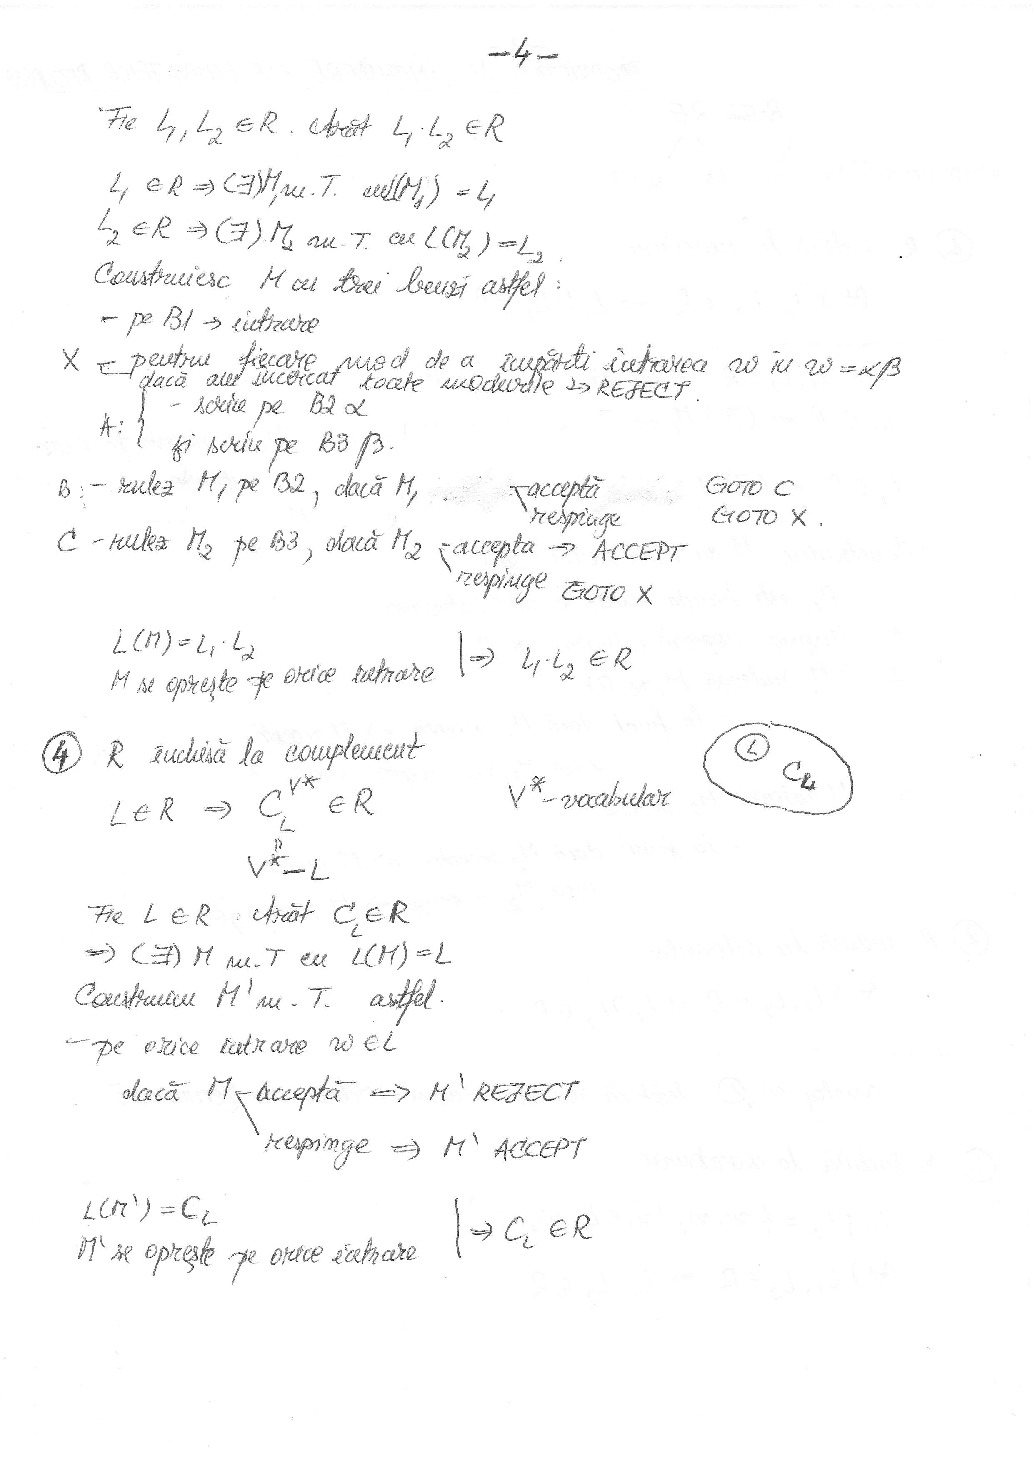 -4-
Fie L1, L2 ∈ R. Arăt L1·L2 ∈ R
L1 ∈ R ⇒ (∃) M1 m.T. cu L(M1) = L1
L2 ∈ R ⇒ (∃) M2 m.T. cu L(M2) = L2.
Construiesc M cu trei benzi astfel:
- pe B1 → intrare
X - pentru fiecare mod de a împărți intrarea w în w = αβ
dacă am încercat toate modurile => REJECT.
A: { - scriu pe B2 α
și scriu pe B3 β.
B: - rulez M1 pe B2, dacă M1 - acceptă GOTO C
respinge GOTO X.
C - rulez M2 pe B3, dacă M2 - accepta ⇒ ACCEPT
respinge GOTO X
L(M) = L1·L2
M se oprește pe orice intrare | ⇒ L1·L2 ∈ R
④ R închisă la complement
L ∈ R ⇒ C_L^V* ∈ R V* - vocabular
L C_L
"
V* - L
Fie L ∈ R. Arăt C_L ∈ R
⇒ (∃) M m.T cu L(M) = L
Construim M' m.T. astfel.
- pe orice intrare w ∈ L
dacă M - acceptă ⇒ M' REJECT
respinge ⇒ M' ACCEPT
L(M') = C_L
M' se oprește pe orice intrare | ⇒ C_L ∈ R